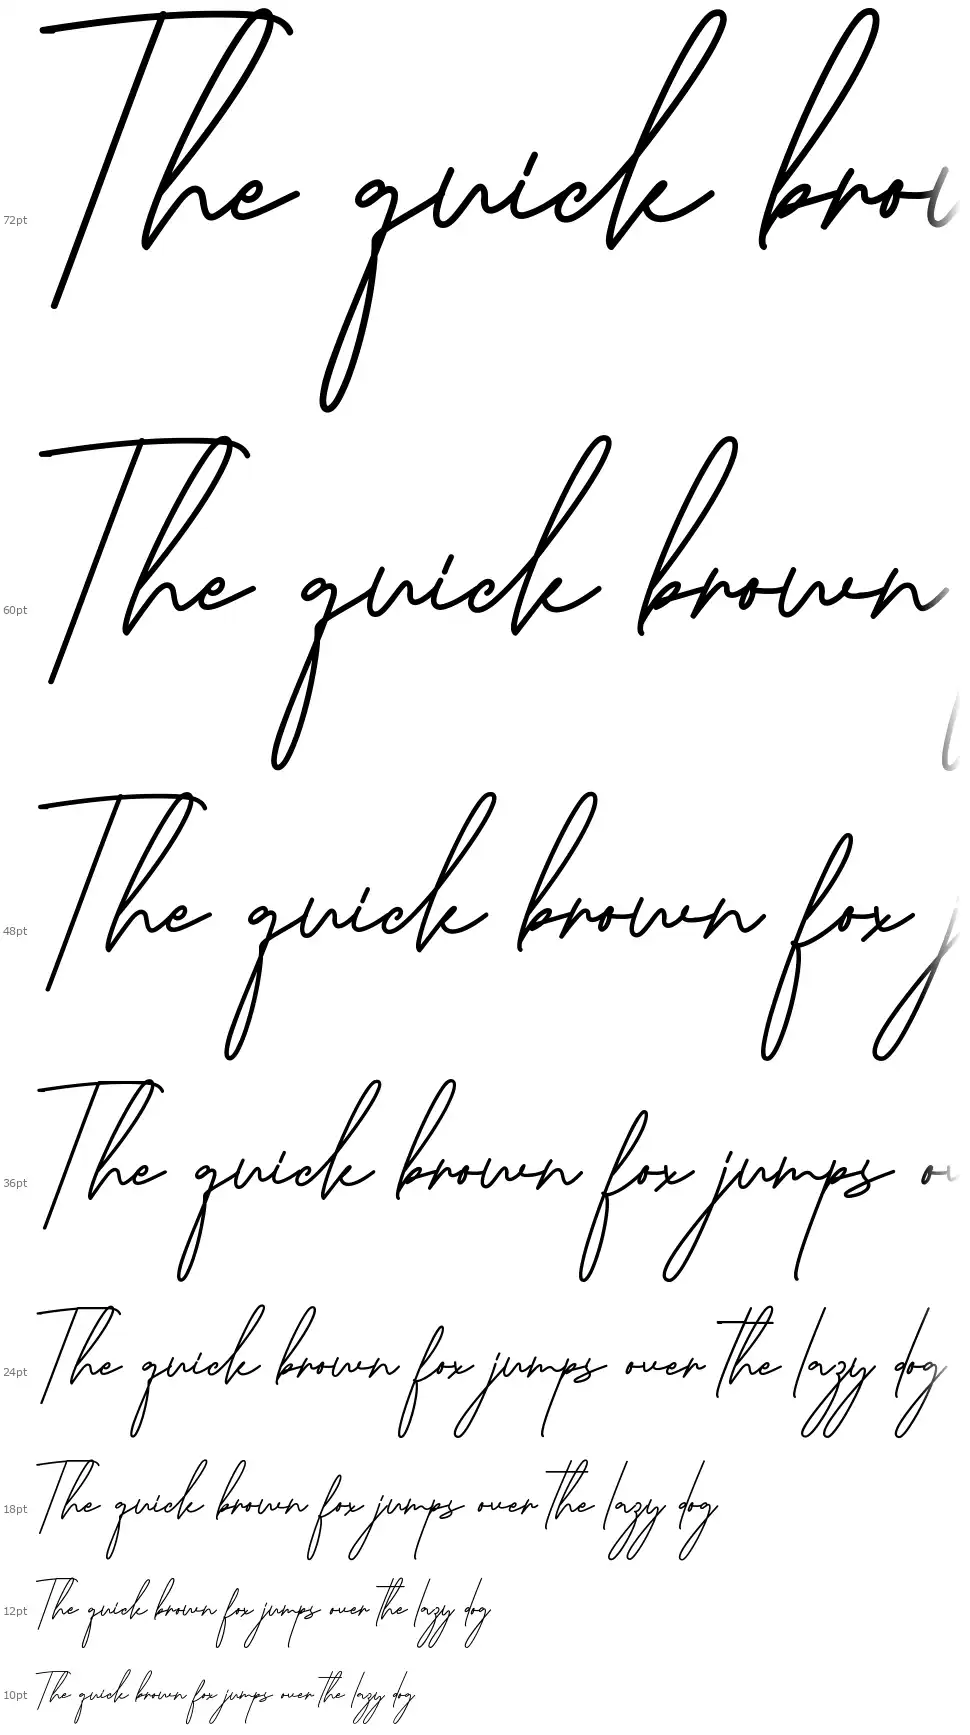 72pt The quick brow
60pt The quick brown
48pt The quick brown fox j
36pt The quick brown fox jumps ov
24pt The quick brown fox jumps over the lazy dog
18pt The quick brown fox jumps over the lazy dog
12pt The quick brown fox jumps over the lazy dog
10pt The quick brown fox jumps over the lazy dog